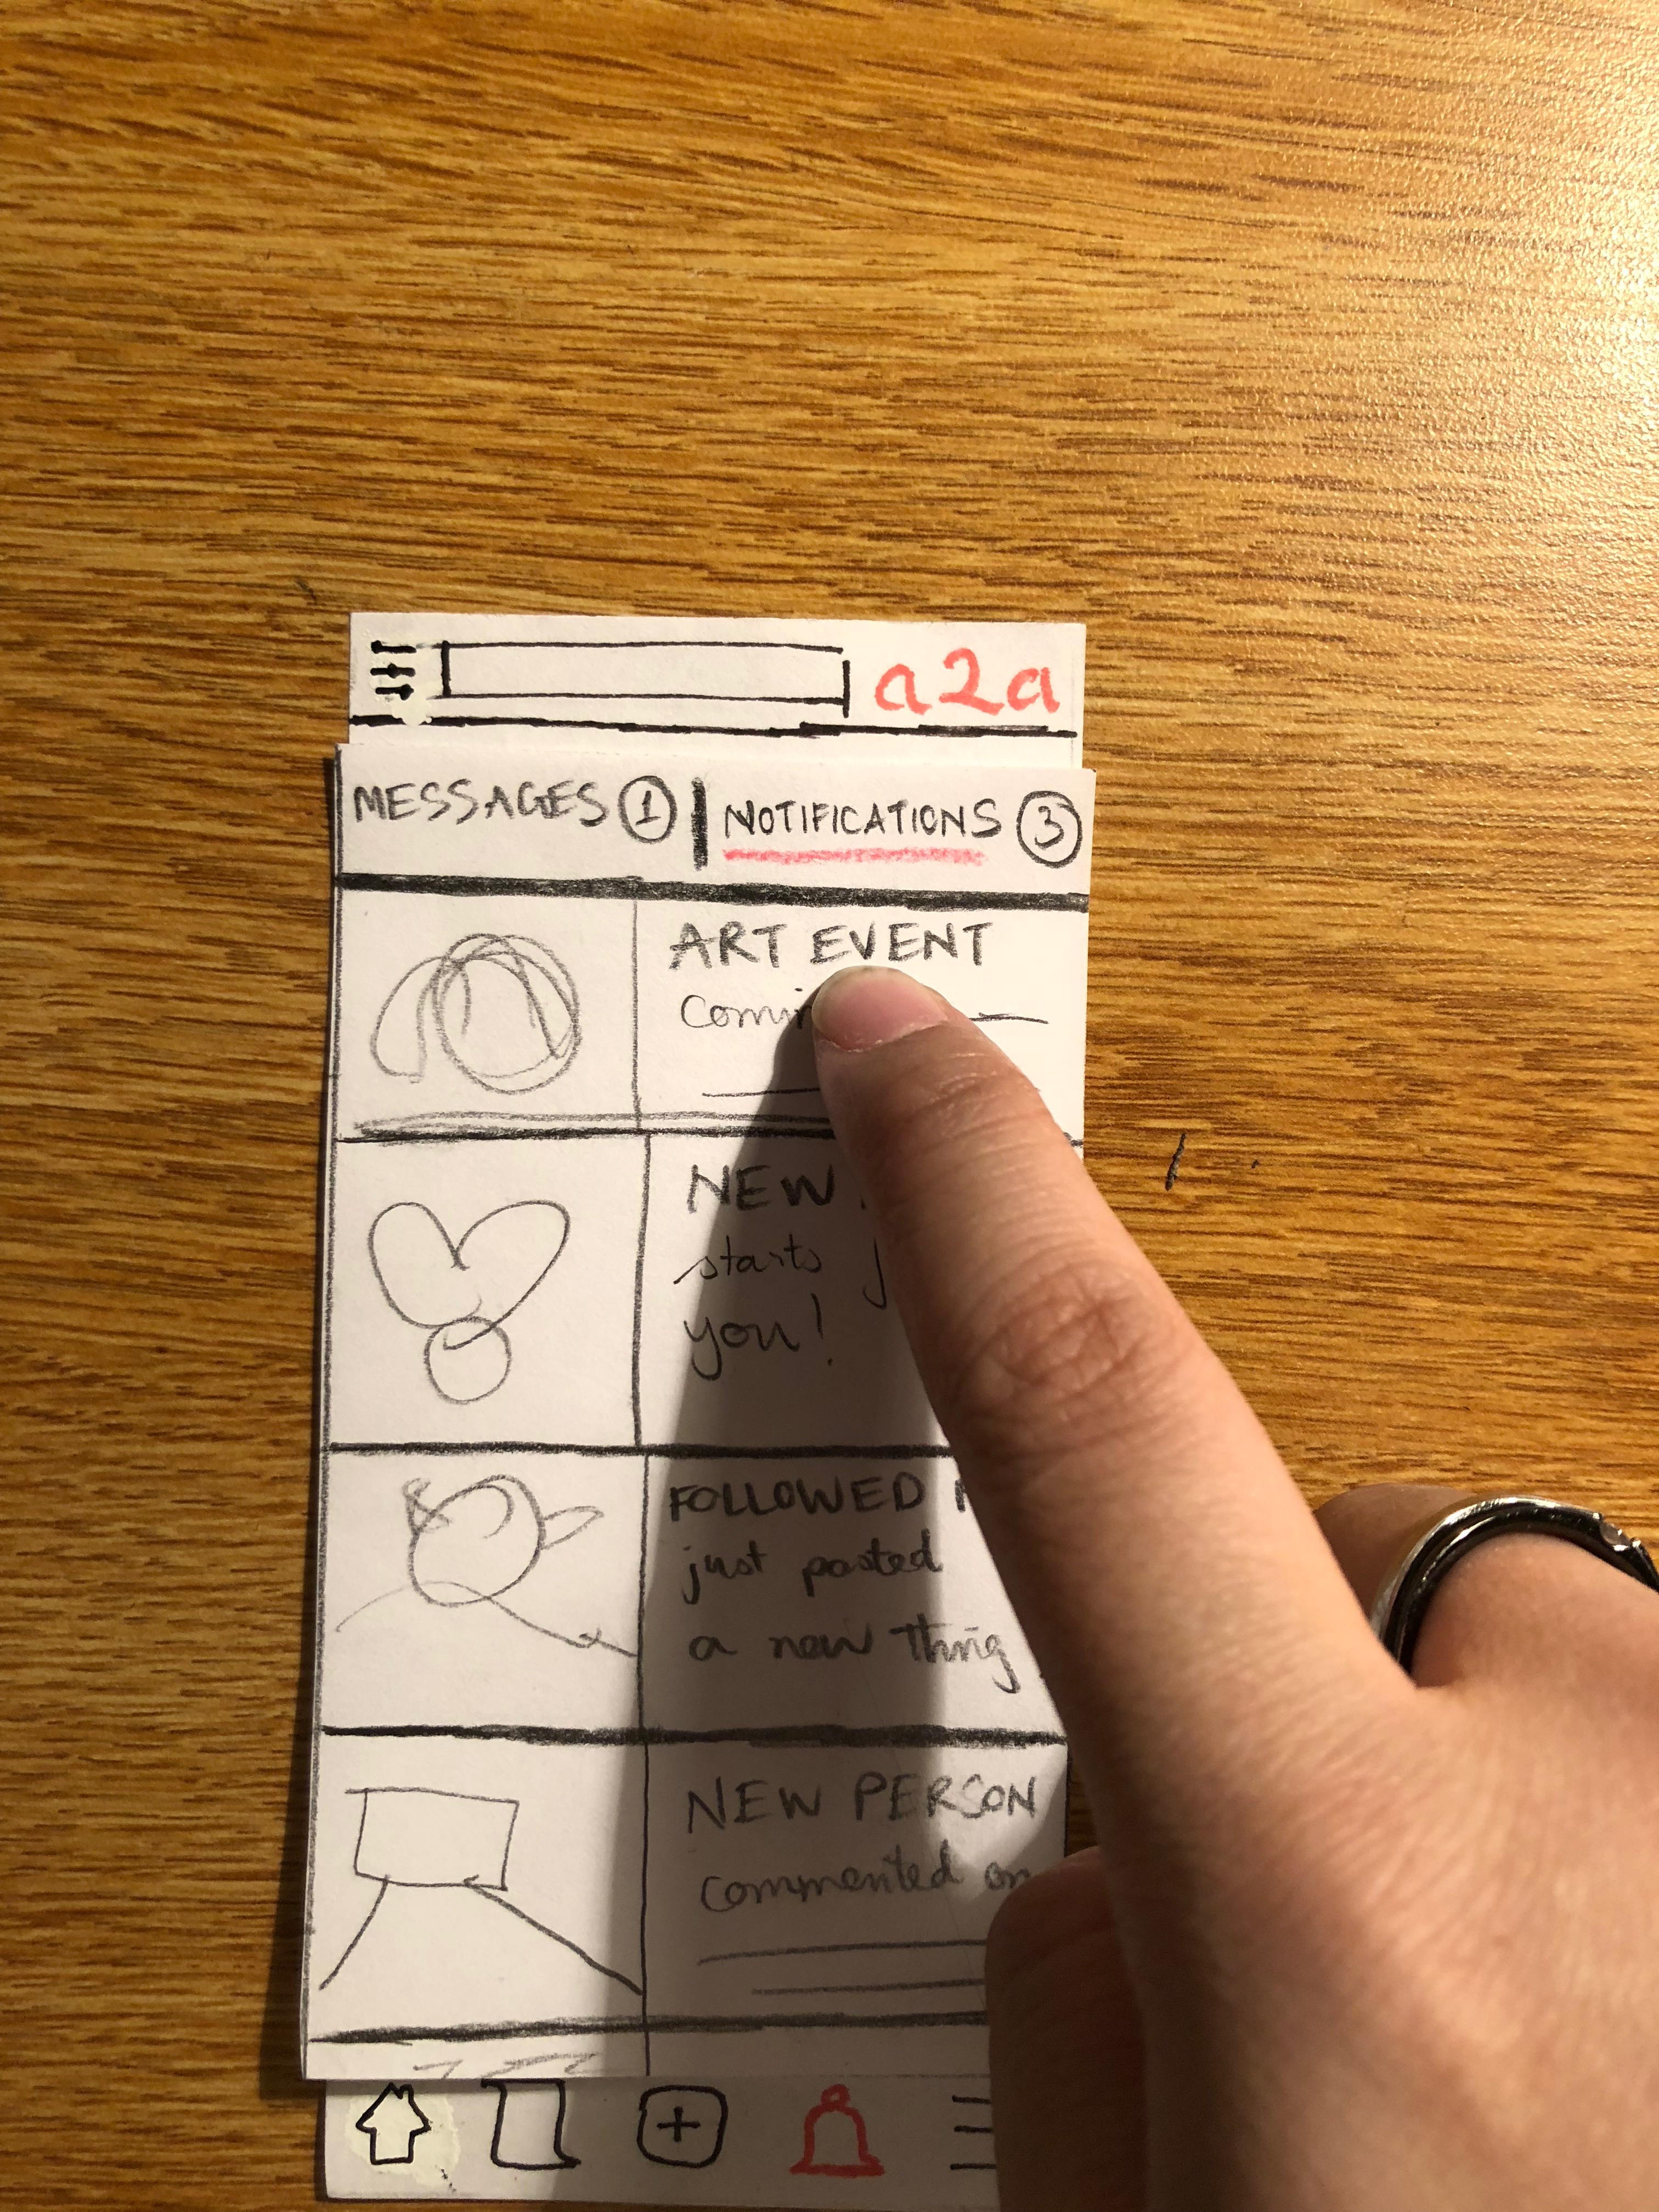 a2a
MESSAGES 1 | NOTIFICATIONS 3
ART EVENT
NEW
starts
you!
FOLLOWED
just posted
a new thing
NEW PERSON
commented on